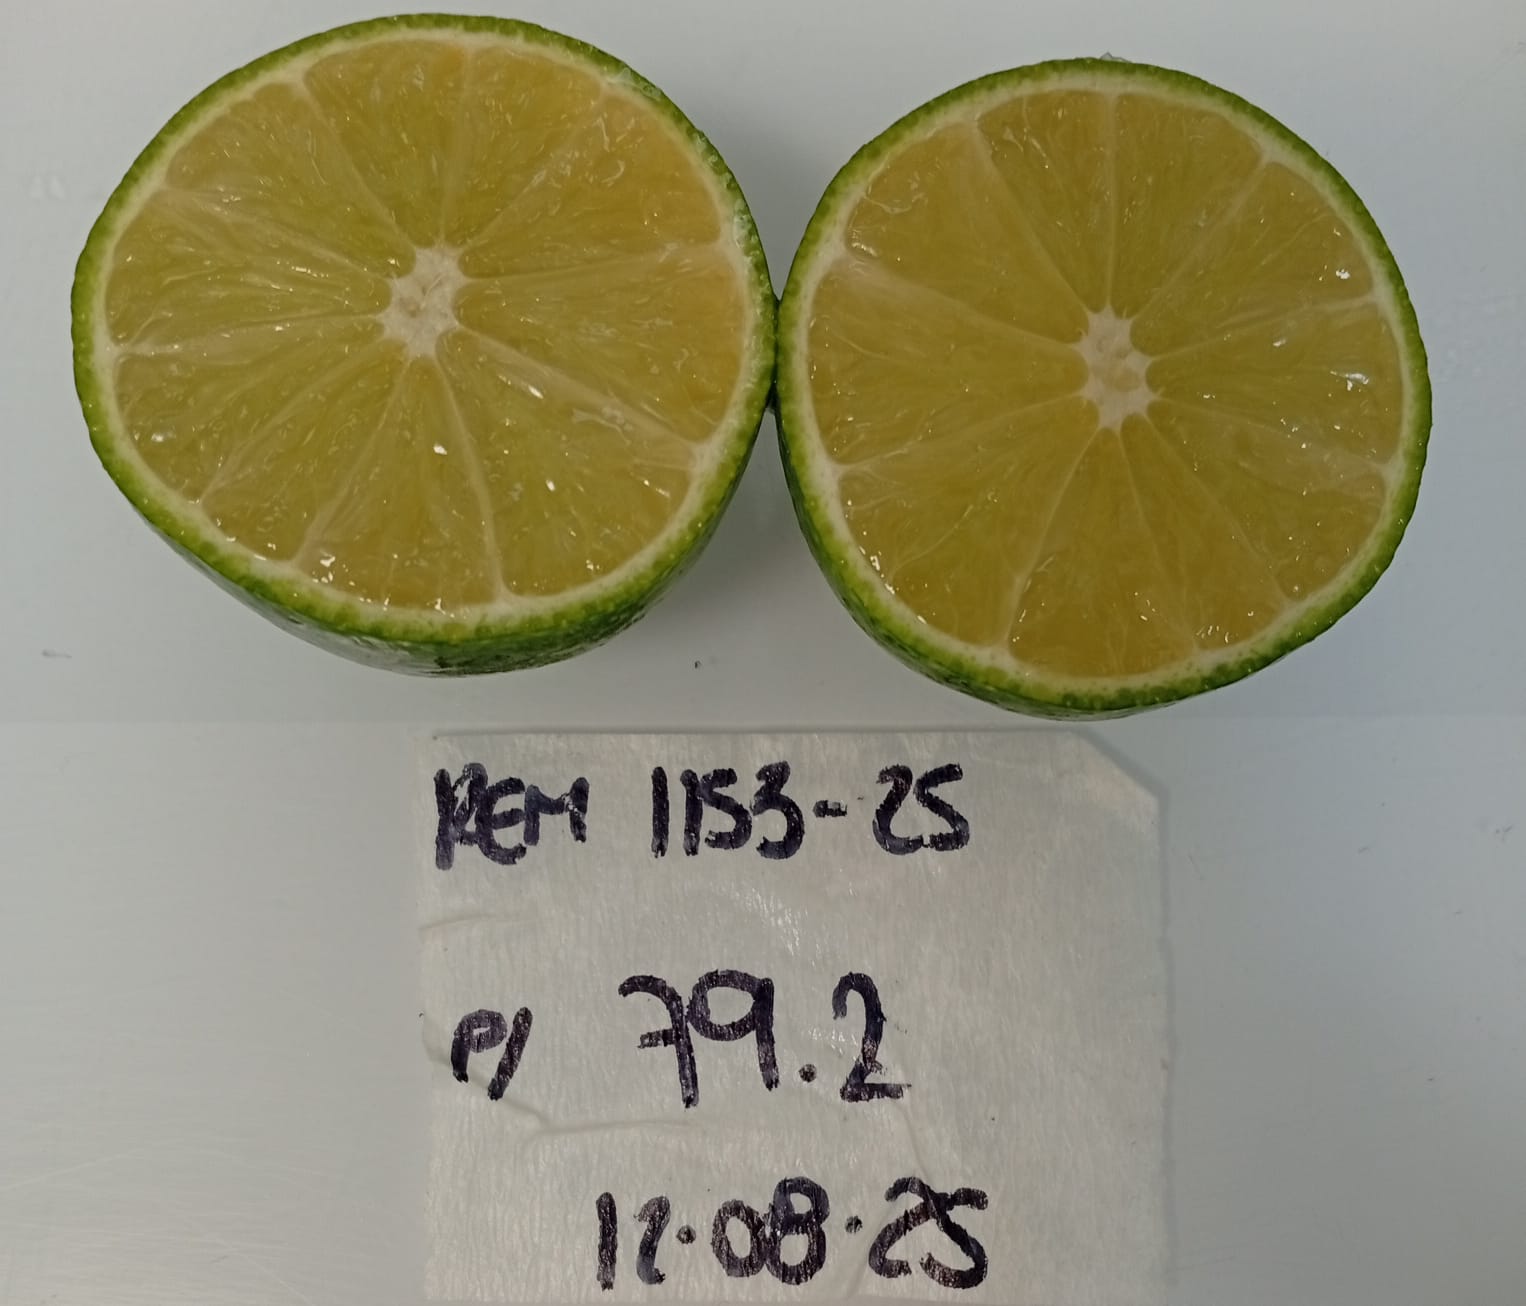 REM 1153-25
P/ 79.2
12.08.25